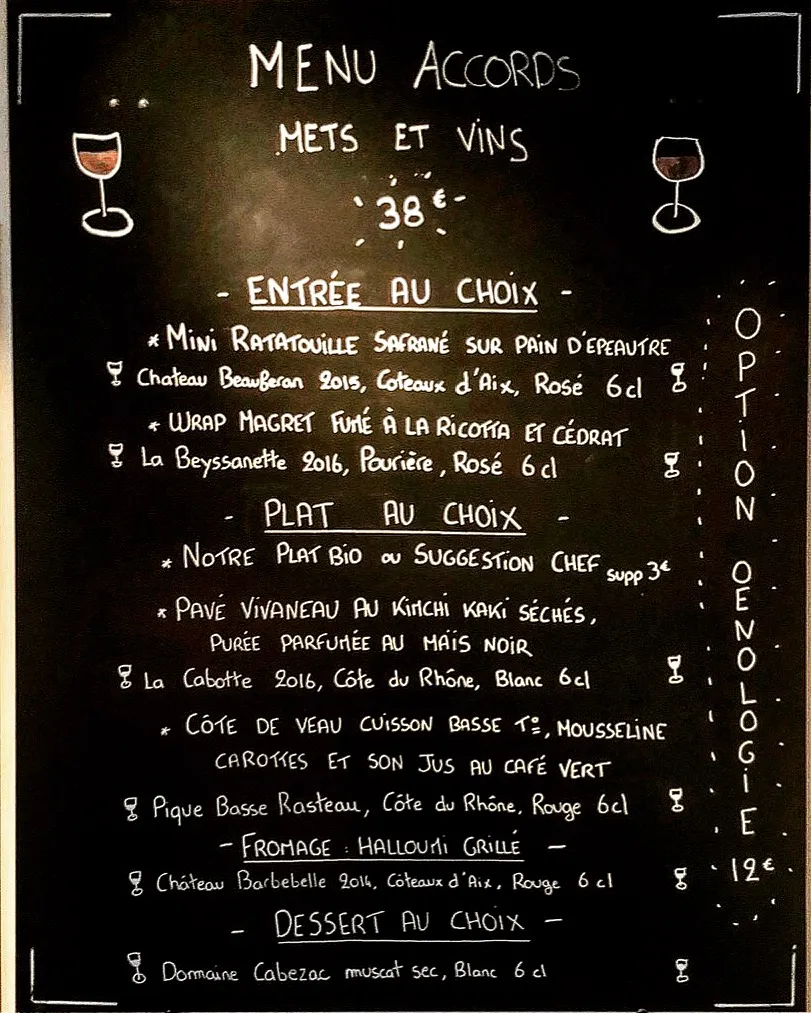 MENU ACCORDS
METS ET VINS
38€
- ENTRÉE AU CHOIX -
* MINI RATATOUILLE SAFRANÉ SUR PAIN D'EPEAUTRE
Chateau Beauferan 2015, Coteaux d'Aix, Rosé 6cl
* WRAP MAGRET FUMÉ À LA RICOTTA ET CÉDRAT
La Beyssanette 2016, Pourière, Rosé 6cl
- PLAT AU CHOIX -
* NOTRE PLAT BIO ou SUGGESTION CHEF supp 3€
* PAVÉ VIVANEAU AU KIMCHI KAKI SÉCHÉS,
PURÉE PARFUMÉE AU MAÏS NOIR
La Cabotte 2016, Côte du Rhône, Blanc 6cl
* CÔTE DE VEAU CUISSON BASSE Tº, MOUSSELINE
CAROTTES ET SON JUS AU CAFÉ VERT
Pique Basse Rasteau, Côte du Rhône, Rouge 6cl
- FROMAGE : HALLOUMI GRILLÉ -
Château Barbebelle 2014, Côteaux d'Aix, Rouge 6 cl
- DESSERT AU CHOIX -
Domaine Cabezac muscat sec, Blanc 6 cl
OPTION OENOLOGIE
12€